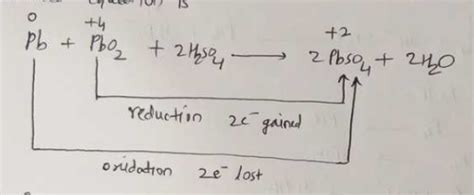 0 +4 +2
Pb + PbO2 + 2H2SO4 → 2PbSO4 + 2H2O
reduction 2e⁻ gained
oxidation 2e⁻ lost